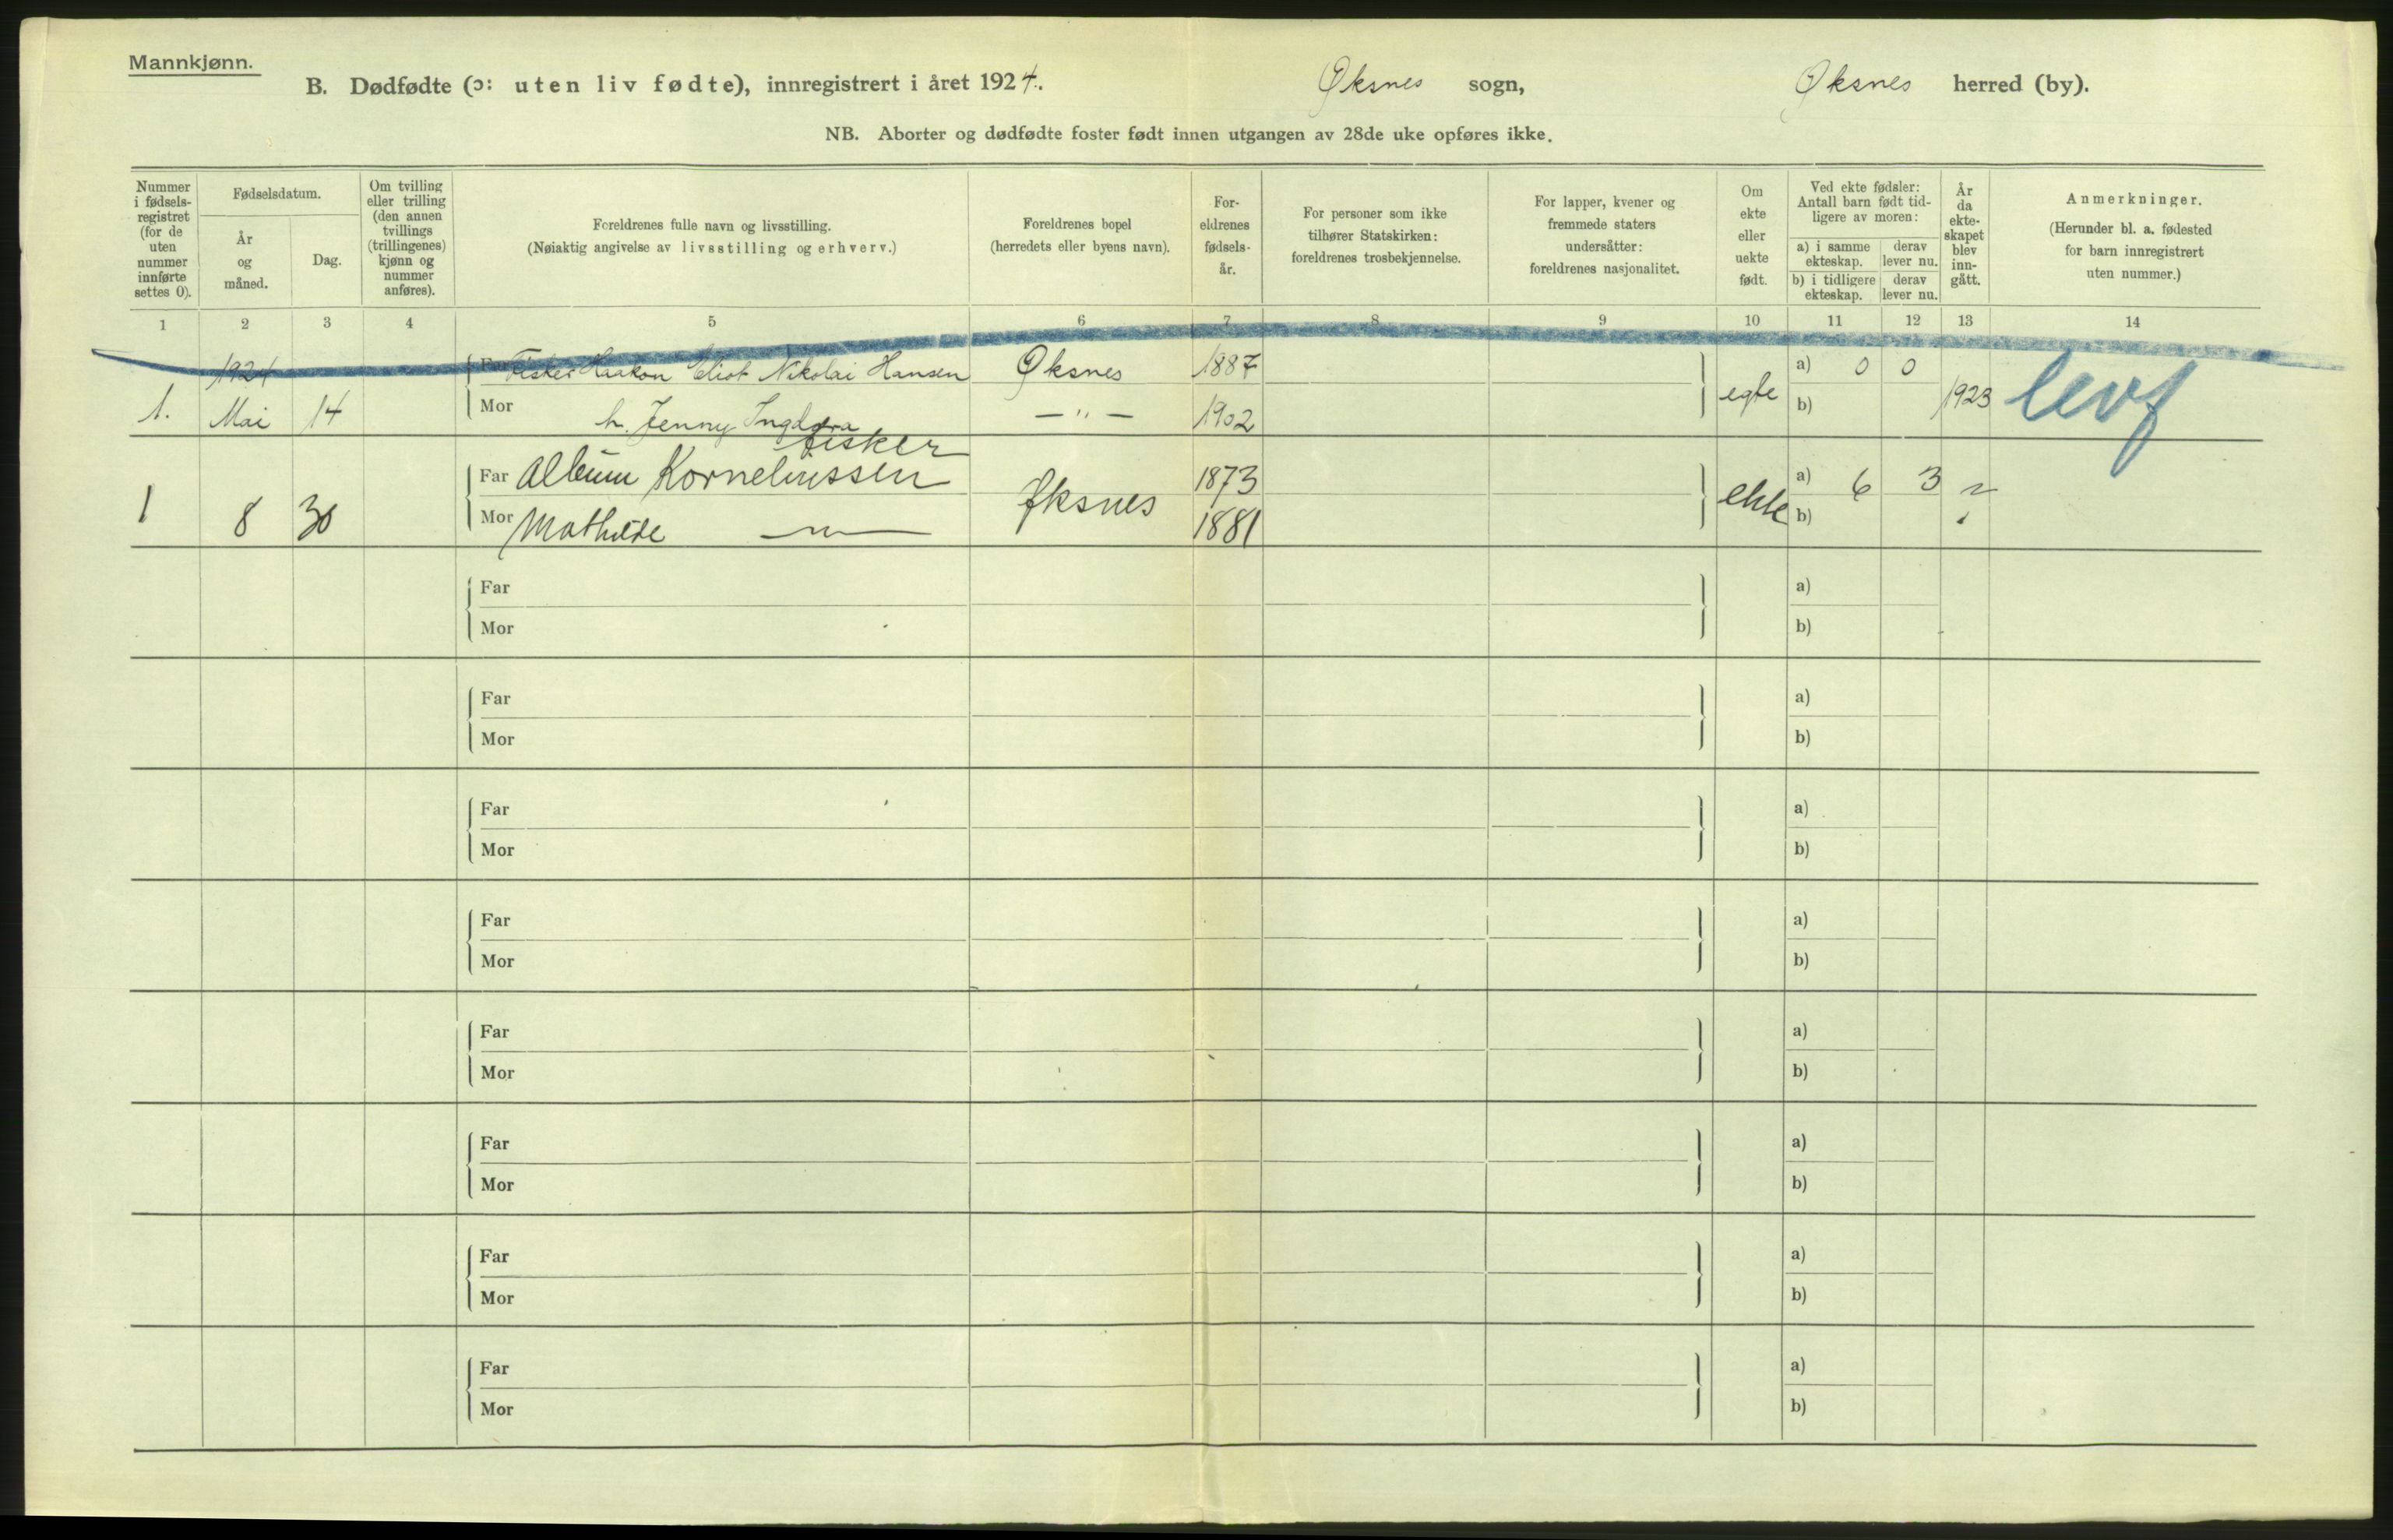 Mannkjønn.
B. Dødfødte (ɔ: uten liv fødte), innregistrert i året 1924. Øksnes sogn, Øksnes herred (by).
NB. Aborter og dødfødte foster født innen utgangen av 28de uke opføres ikke.
Nummer i fødsels-registret (for de uten nummer innførte settes 0).
Fødselsdatum.
År og måned.
Dag.
Om tvilling eller trilling (den annen tvillings (trillingenes) kjønn og nummer anføres).
Foreldrenes fulle navn og livsstilling.
(Nøiaktig angivelse av livsstilling og erhverv.)
Foreldrenes bopel
(herredets eller byens navn).
For-eldrenes fødsels-år.
For personer som ikke tilhører Statskirken: foreldrenes trosbekjennelse.
For lapper, kvener og fremmede staters undersåtter: foreldrenes nasjonalitet.
Om ekte eller uekte født.
Ved ekte fødsler: Antall barn født tid-ligere av moren:
a) i samme ekteskap.
derav lever nu.
b) i tidligere ekteskap.
derav lever nu.
År da ekte-skapet blev inn-gått.
Anmerkninger.
(Herunder bl. a. fødested for barn innregistrert uten nummer.)
1 2 3 4 5 6 7 8 9 10 11 12 13 14
1924 Far Fisker Haakon Eliot Nikolai Hansen Øksnes 1887 a) 0 0
1. Mai 14 Mor h. Jenny 1902 egte b) 1923 levf
—"—
fisker
Far Korneliussen 1873 a) 6 3 ?
1 8 30 Mor Mathilde —"— Øksnes 1881 ekte b)
Far a)
Mor b)
Far a)
Mor b)
Far a)
Mor b)
Far a)
Mor b)
Far a)
Mor b)
Far a)
Mor b)
Far a)
Mor b)
Far a)
Mor b)